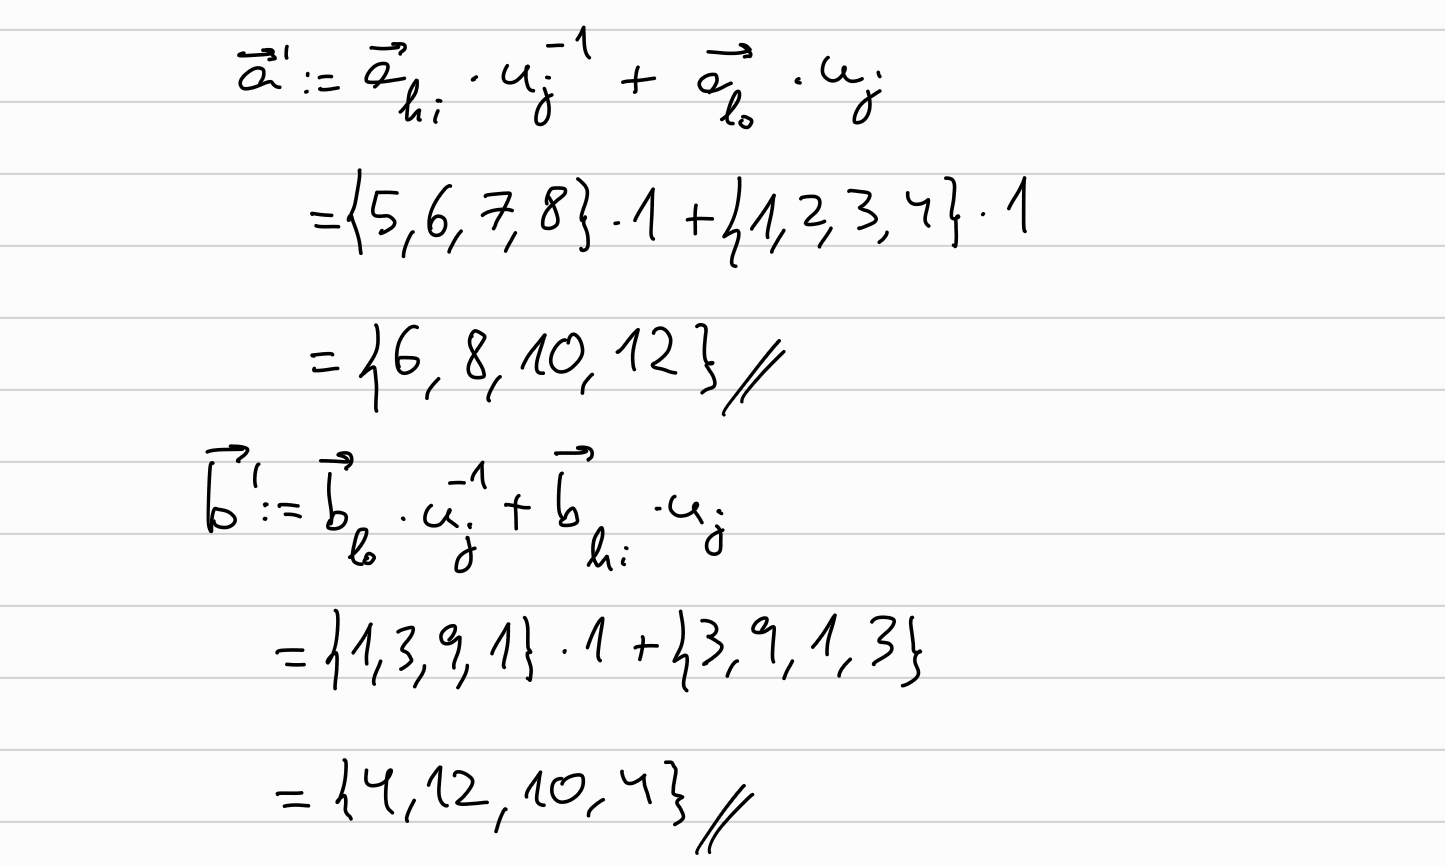 a⃗' := a⃗_hi · u_j^-1 + a⃗_lo · u_j
= {5, 6, 7, 8} · 1 + {1, 2, 3, 4} · 1
= {6, 8, 10, 12} //
b⃗' := b⃗_lo · u_j^-1 + b⃗_hi · u_j
= {1, 3, 9, 1} · 1 + {3, 9, 1, 3}
= {4, 12, 10, 4} //